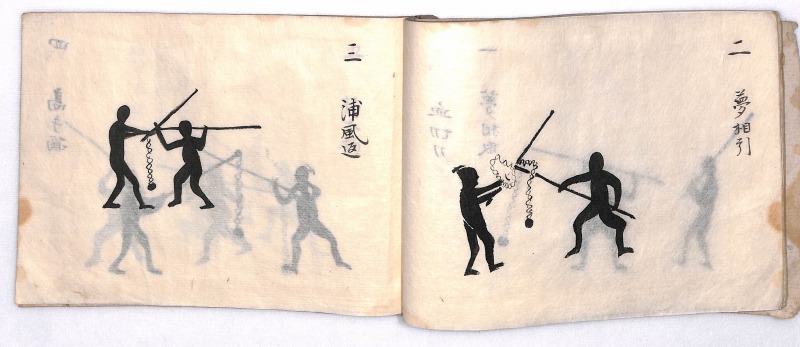 二
夢相引
三
浦風返